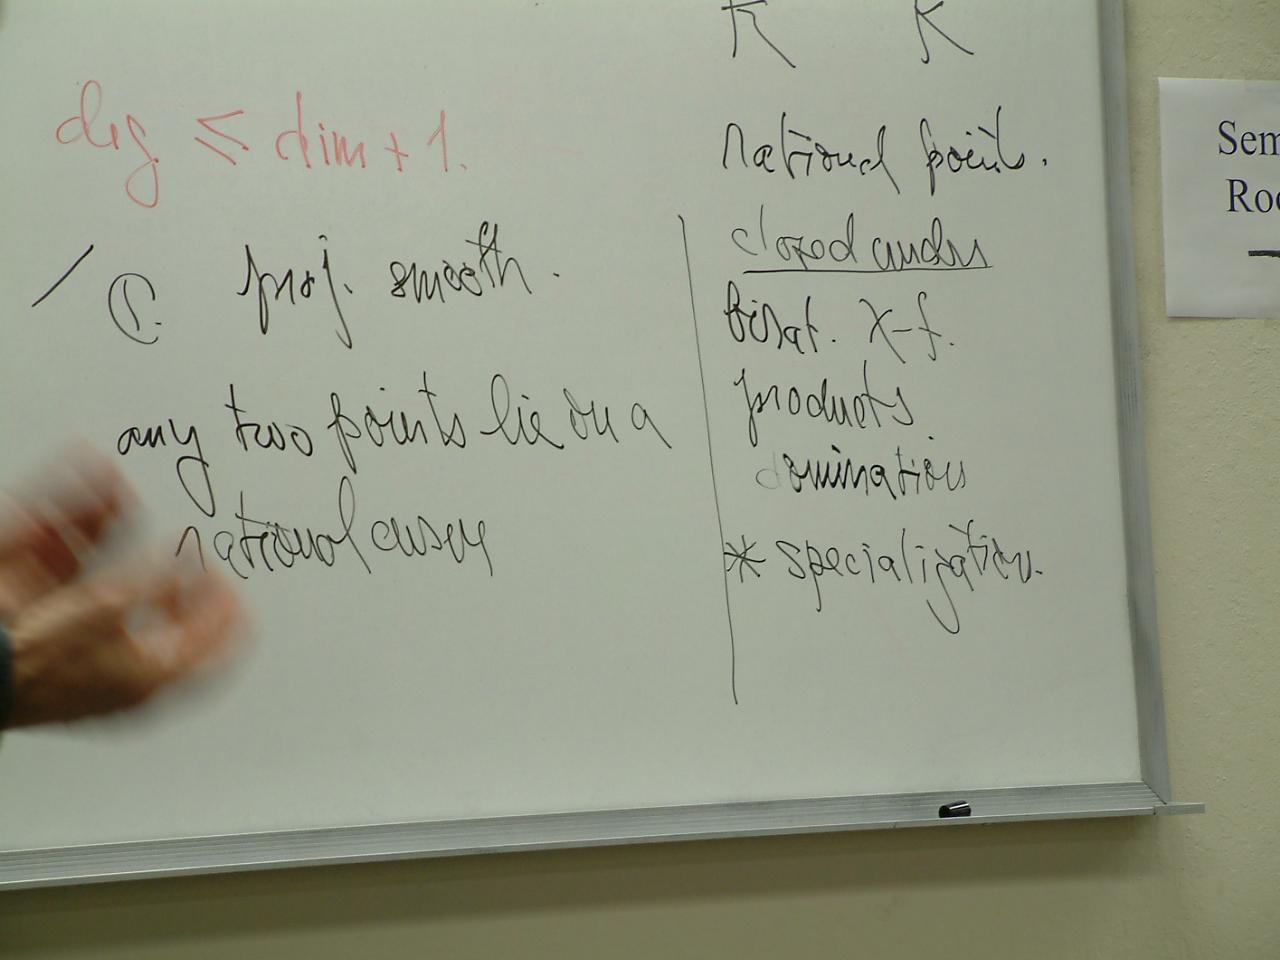 deg ≤ dim + 1.
/ ℂ. proj. smooth.
any two points lie on a
rational curve
k̄ K
rational points.
closed under
birat. X-f.
products
domination
* specialization.
Sem
Roo